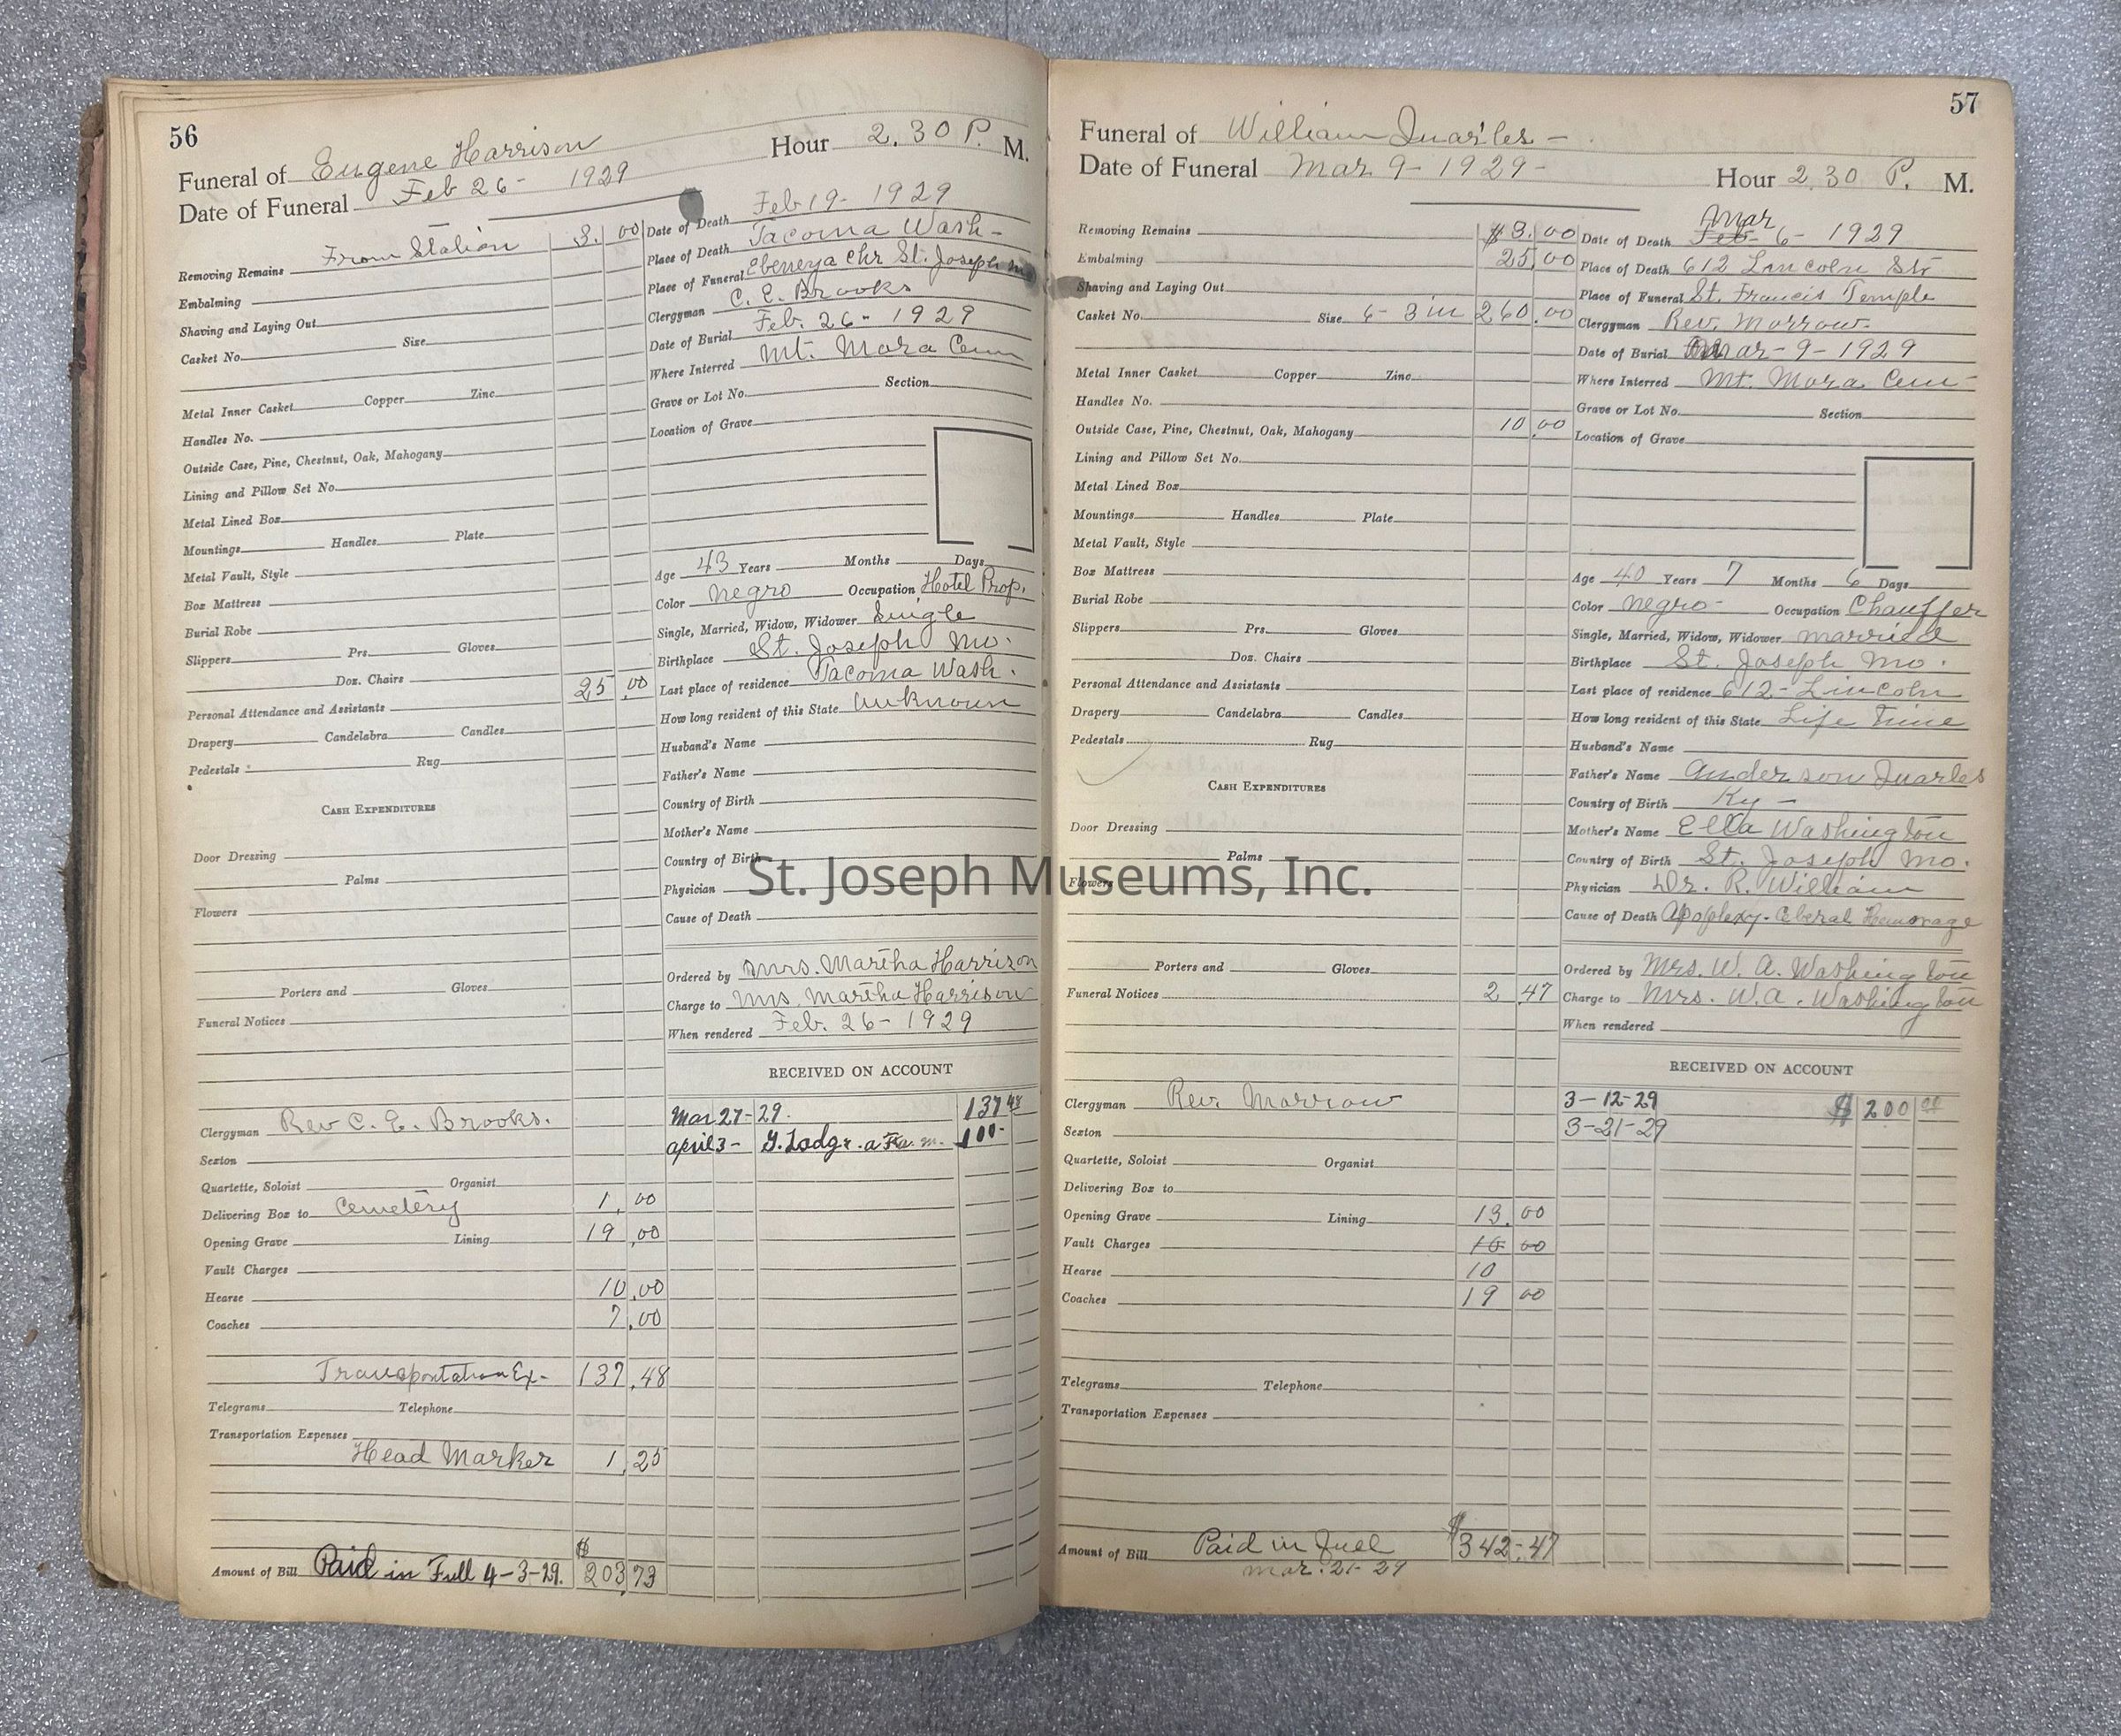 56
Funeral of Eugene Harrison Hour 2.30 P. M.
Date of Funeral Feb 26- 1929
Removing Remains From Station 3.00
Embalming
Shaving and Laying Out
Casket No. Size
Metal Inner Casket Copper Zinc
Handles No.
Outside Case, Pine, Chestnut, Oak, Mahogany
Lining and Pillow Set No.
Metal Lined Box
Mountings Handles Plate
Metal Vault, Style
Box Mattress
Burial Robe
Slippers Prs. Gloves
Doz. Chairs
Personal Attendance and Assistants 25.00
Drapery Candelabra Candles
Pedestals Rug
CASH EXPENDITURES
Door Dressing
Palms
Flowers
Porters and Gloves
Funeral Notices
Clergyman Rev C. E. Brooks.
Sexton
Quartette, Soloist Organist
Delivering Box to Cemetery 1.00
Opening Grave Lining 19.00
Vault Charges
Hearse 10.00
Coaches 7.00
Transportation Ex- 137.48
Telegrams Telephone
Transportation Expenses
Head Marker 1.25
Amount of Bill Paid in Full 4-3-29. $203,73
Date of Death Feb 19- 1929
Place of Death Tacoma Wash-
Place of Funeral Ebeneya Chr St. Joseph Mo
Clergyman C. E. Brooks
Date of Burial Feb. 26- 1929
Where Interred Mt. Mora Cem
Grave or Lot No. Section
Location of Grave
Age 43 Years Months Days
Color negro Occupation Hotel Prop.
Single, Married, Widow, Widower Single
Birthplace St. Joseph Mo.
Last place of residence Tacoma Wash.
How long resident of this State Unknown
Husband's Name
Father's Name
Country of Birth
Mother's Name
Country of Birth
Physician
Cause of Death
Ordered by Mrs. Martha Harrison
Charge to Mrs. Martha Harrison
When rendered Feb. 26- 1929
RECEIVED ON ACCOUNT
Mar 27-29. 137 48
April 3- G. Lodge. a Fa. m. 100-
57
Funeral of William Quarles -
Date of Funeral Mar 9- 1929- Hour 2.30 P. M.
Removing Remains $3.00
Embalming 25.00
Shaving and Laying Out
Casket No. Size 6- 3 in 260.00
Metal Inner Casket Copper Zinc
Handles No.
Outside Case, Pine, Chestnut, Oak, Mahogany 10.00
Lining and Pillow Set No.
Metal Lined Box
Mountings Handles Plate
Metal Vault, Style
Box Mattress
Burial Robe
Slippers Prs. Gloves
Doz. Chairs
Personal Attendance and Assistants
Drapery Candelabra Candles
Pedestals Rug
CASH EXPENDITURES
Door Dressing
Palms
Flowers
Porters and Gloves
Funeral Notices 2.47
Clergyman Rev. Morrow
Sexton
Quartette, Soloist Organist
Delivering Box to
Opening Grave Lining 13.00
Vault Charges 10 00
Hearse 10
Coaches 19 00
Telegrams Telephone
Transportation Expenses
Amount of Bill Paid in Full $342-47
Mar. 21- 29
Mar
Date of Death Feb- 6- 1929
Place of Death 612 Lincoln Str
Place of Funeral St. Francis Temple
Clergyman Rev. Morrow.
Date of Burial Mar-9-1929
Where Interred Mt. Mora Cem-
Grave or Lot No. Section
Location of Grave
Age 40 Years 7 Months 6 Days
Color negro- Occupation Chauffer
Single, Married, Widow, Widower married
Birthplace St. Joseph Mo.
Last place of residence 612- Lincoln
How long resident of this State Life Time
Husband's Name
Father's Name Anderson Quarles
Country of Birth Ky -
Mother's Name Ella Washington
Country of Birth St. Joseph Mo.
Physician Dr. R. William
Cause of Death Apoplexy. Cberal Hemorage
Ordered by Mrs. W. A. Washington
Charge to Mrs. W. A. Washington
When rendered
RECEIVED ON ACCOUNT
3-12-29 $200 00
3-21-29
St. Joseph Museums, Inc.